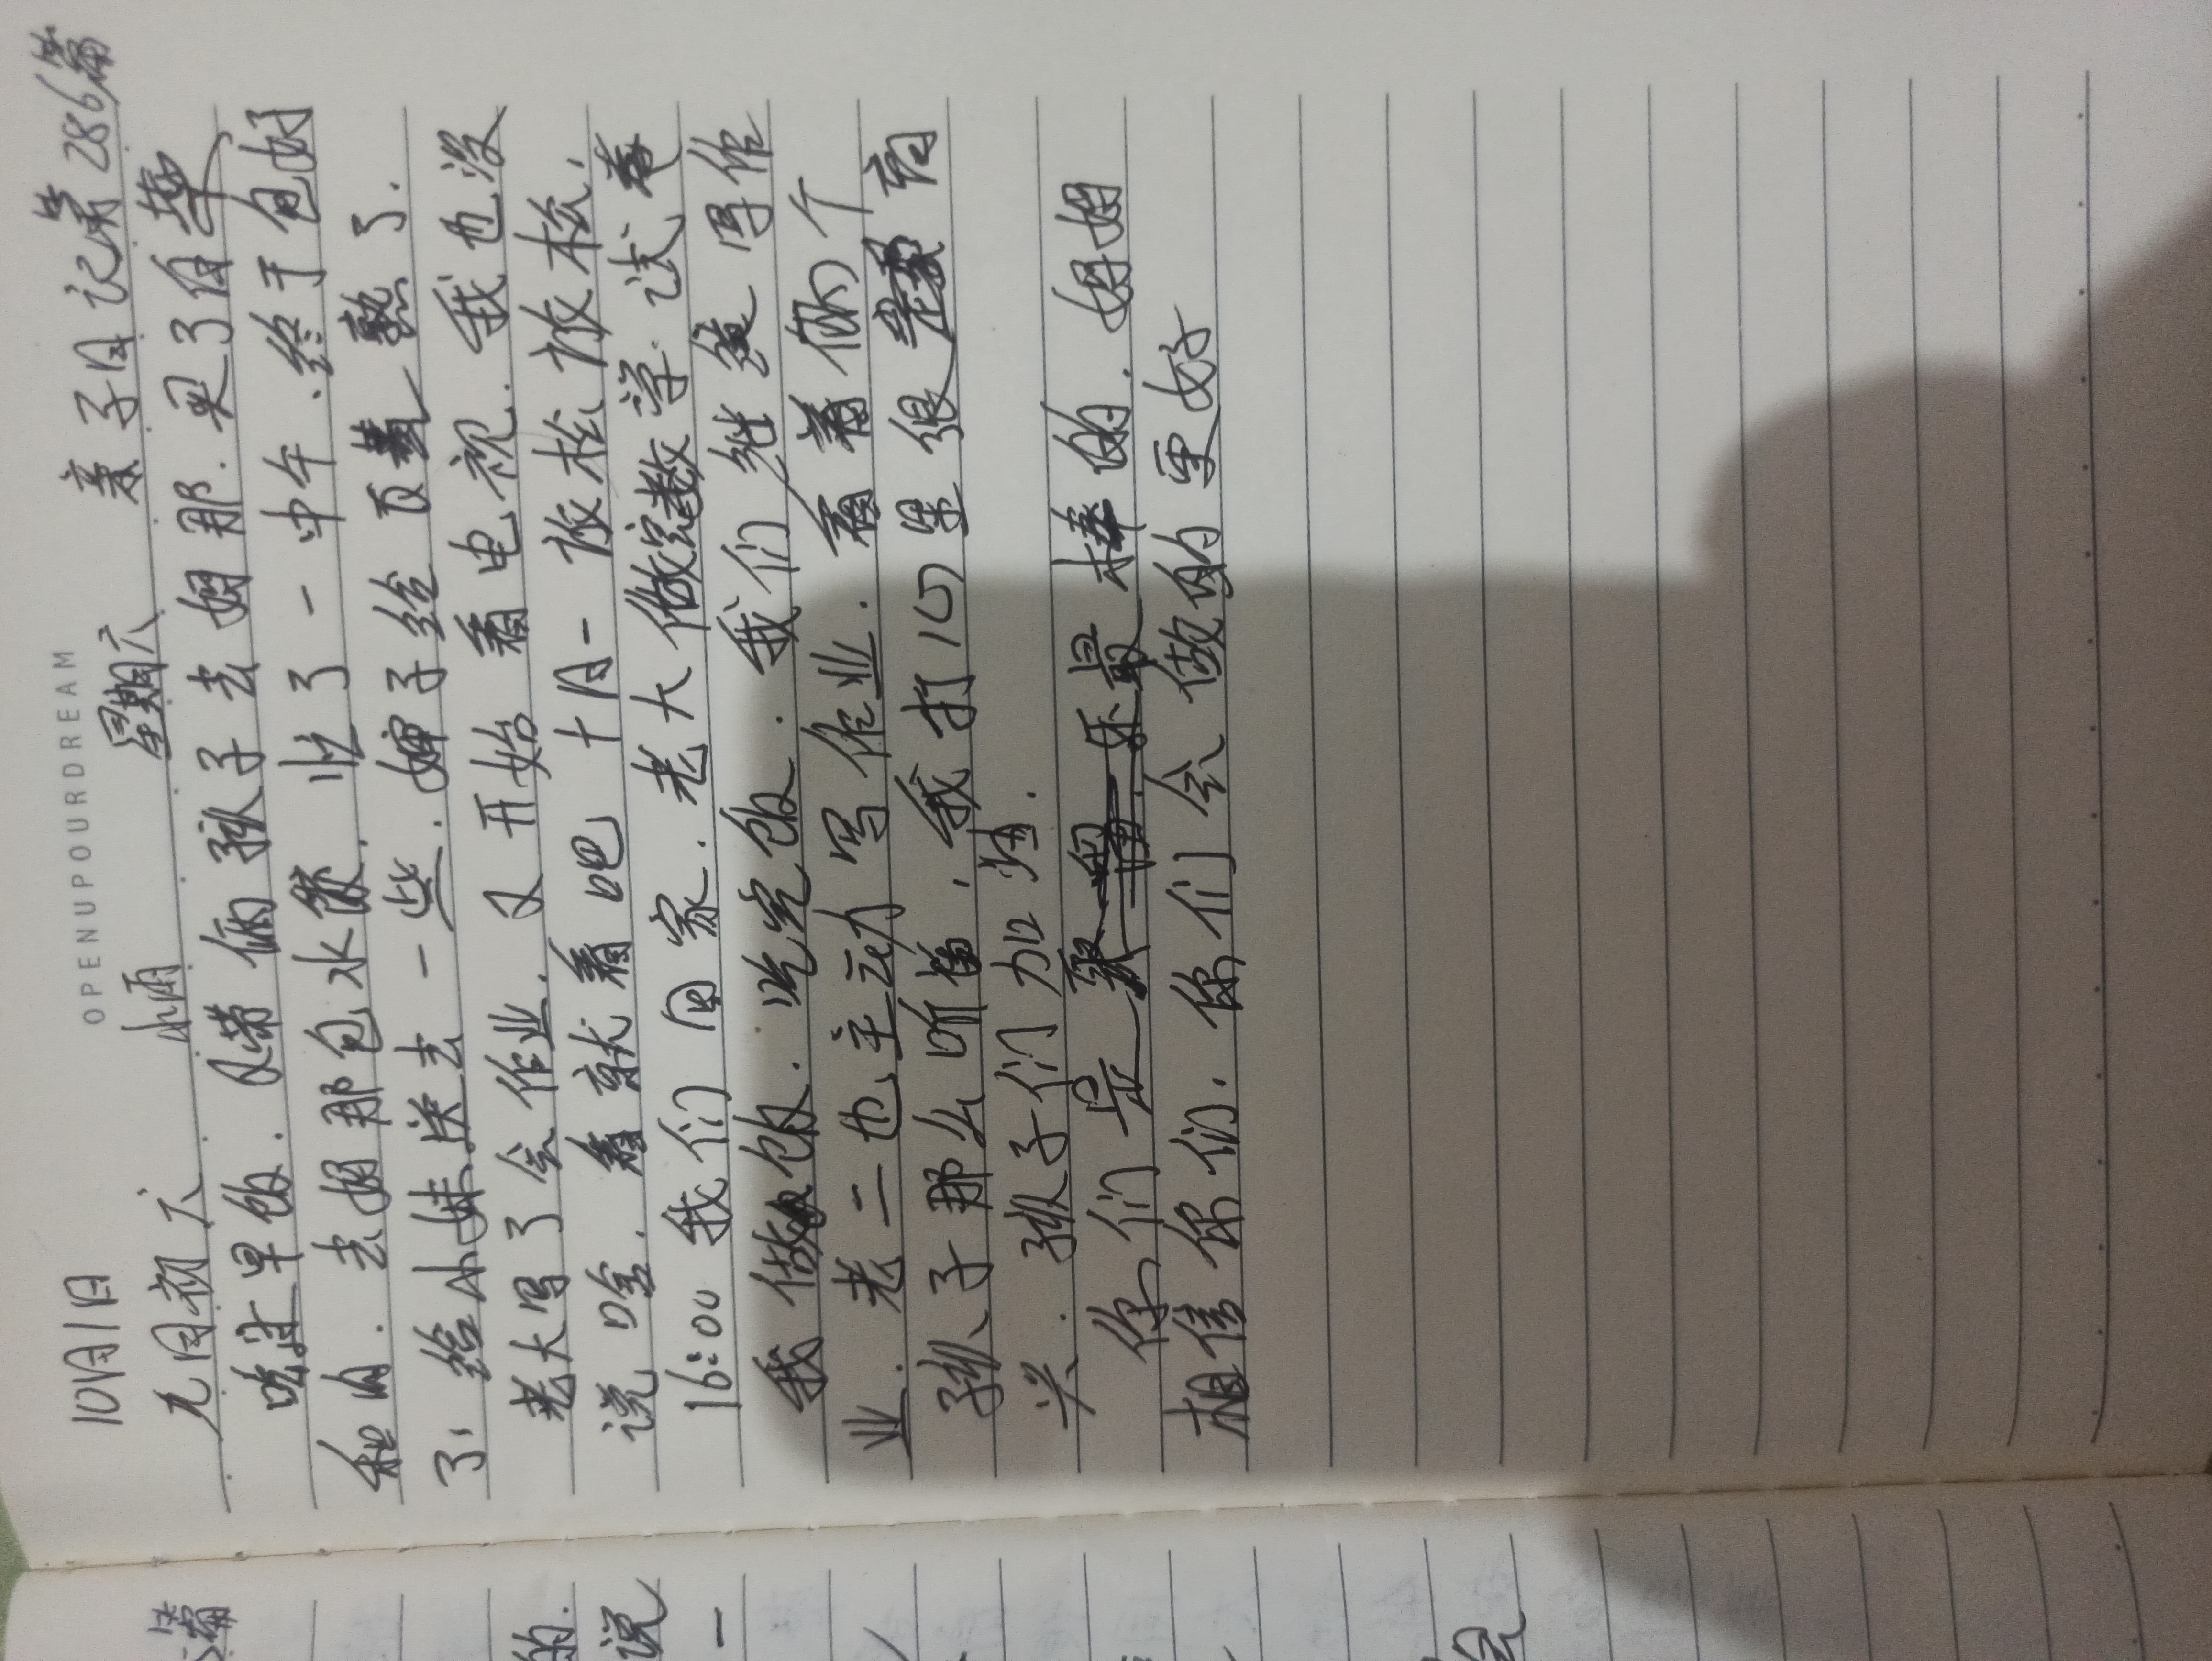 OPENUPOURDREAM
10月1日 亲子日记第286篇
九月初六 小雨 星期六
吃过早饭. 又带俩孩子去姐那. 买了白菜
和肉. 去姐那包水饺. 忙了一中午. 终于包好
了, 给小妹送去一些. 婶子给 熟了.
老大写了会作业. 又开始看电视. 我也没
说啥. 看就看吧 十月一 放松放松.
16:00 我们回家. 老大做完数学试卷
我做饭. 吃完饭. 我们继续写作
业. 老二也主动写作业. 看着你两个
孩子那么听话. 我打心里很 高
兴. 孩子们加油.
你们是 最棒的. 妈妈
相信你们. 你们会做的更好
篇
的.
说
一